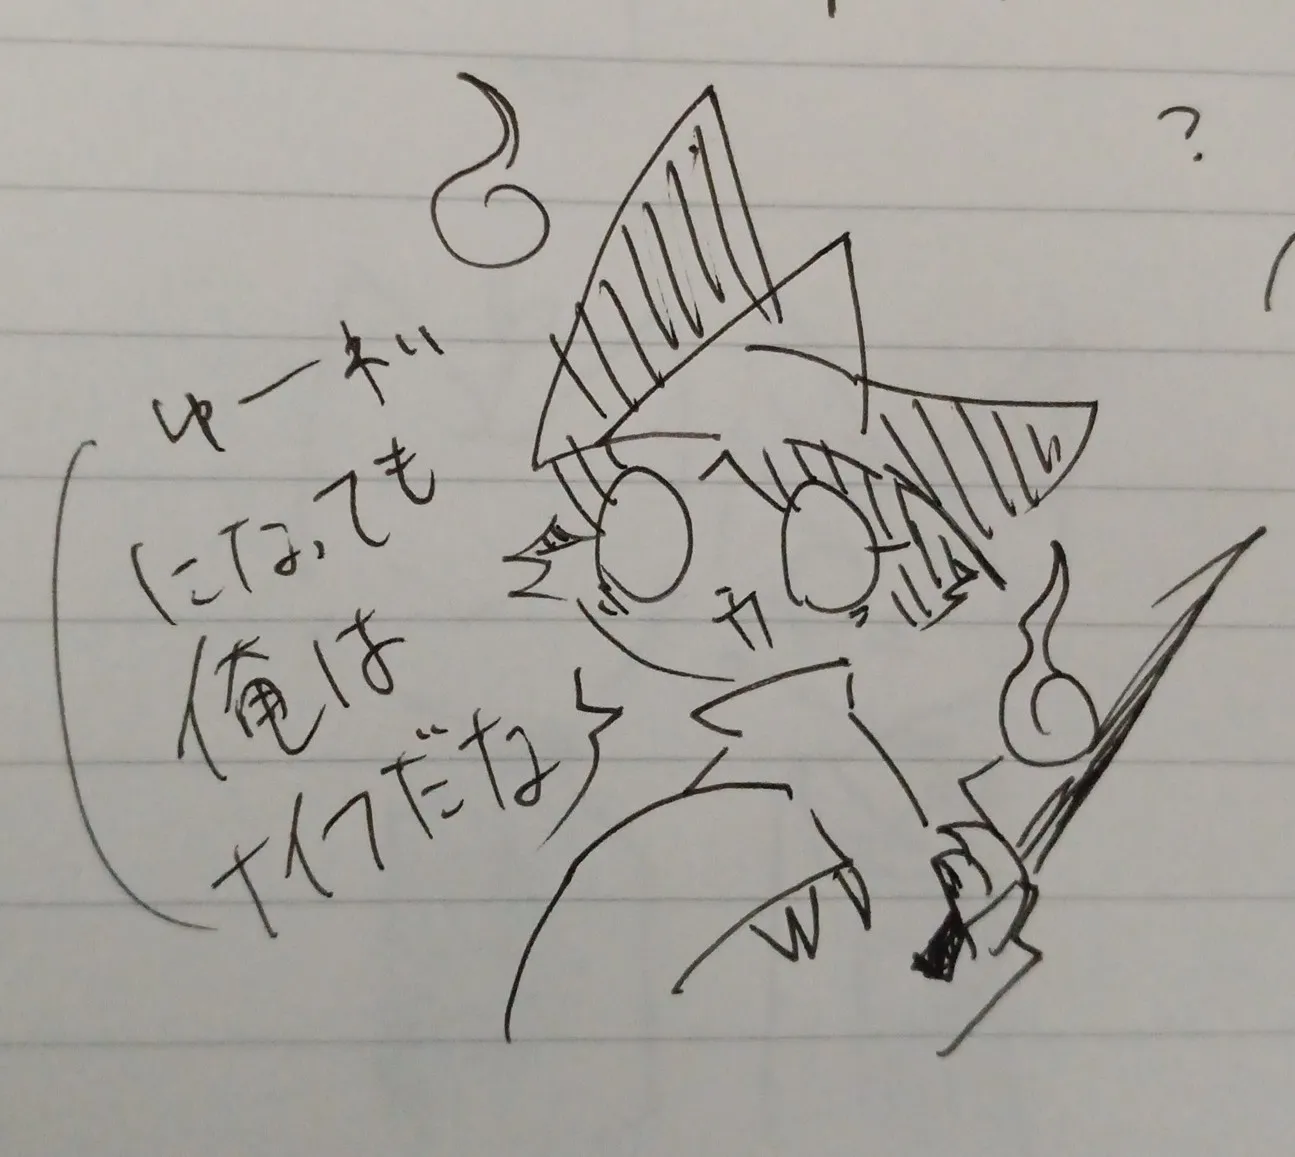 ゆーれい
になっても
俺は
ナイフだな
?